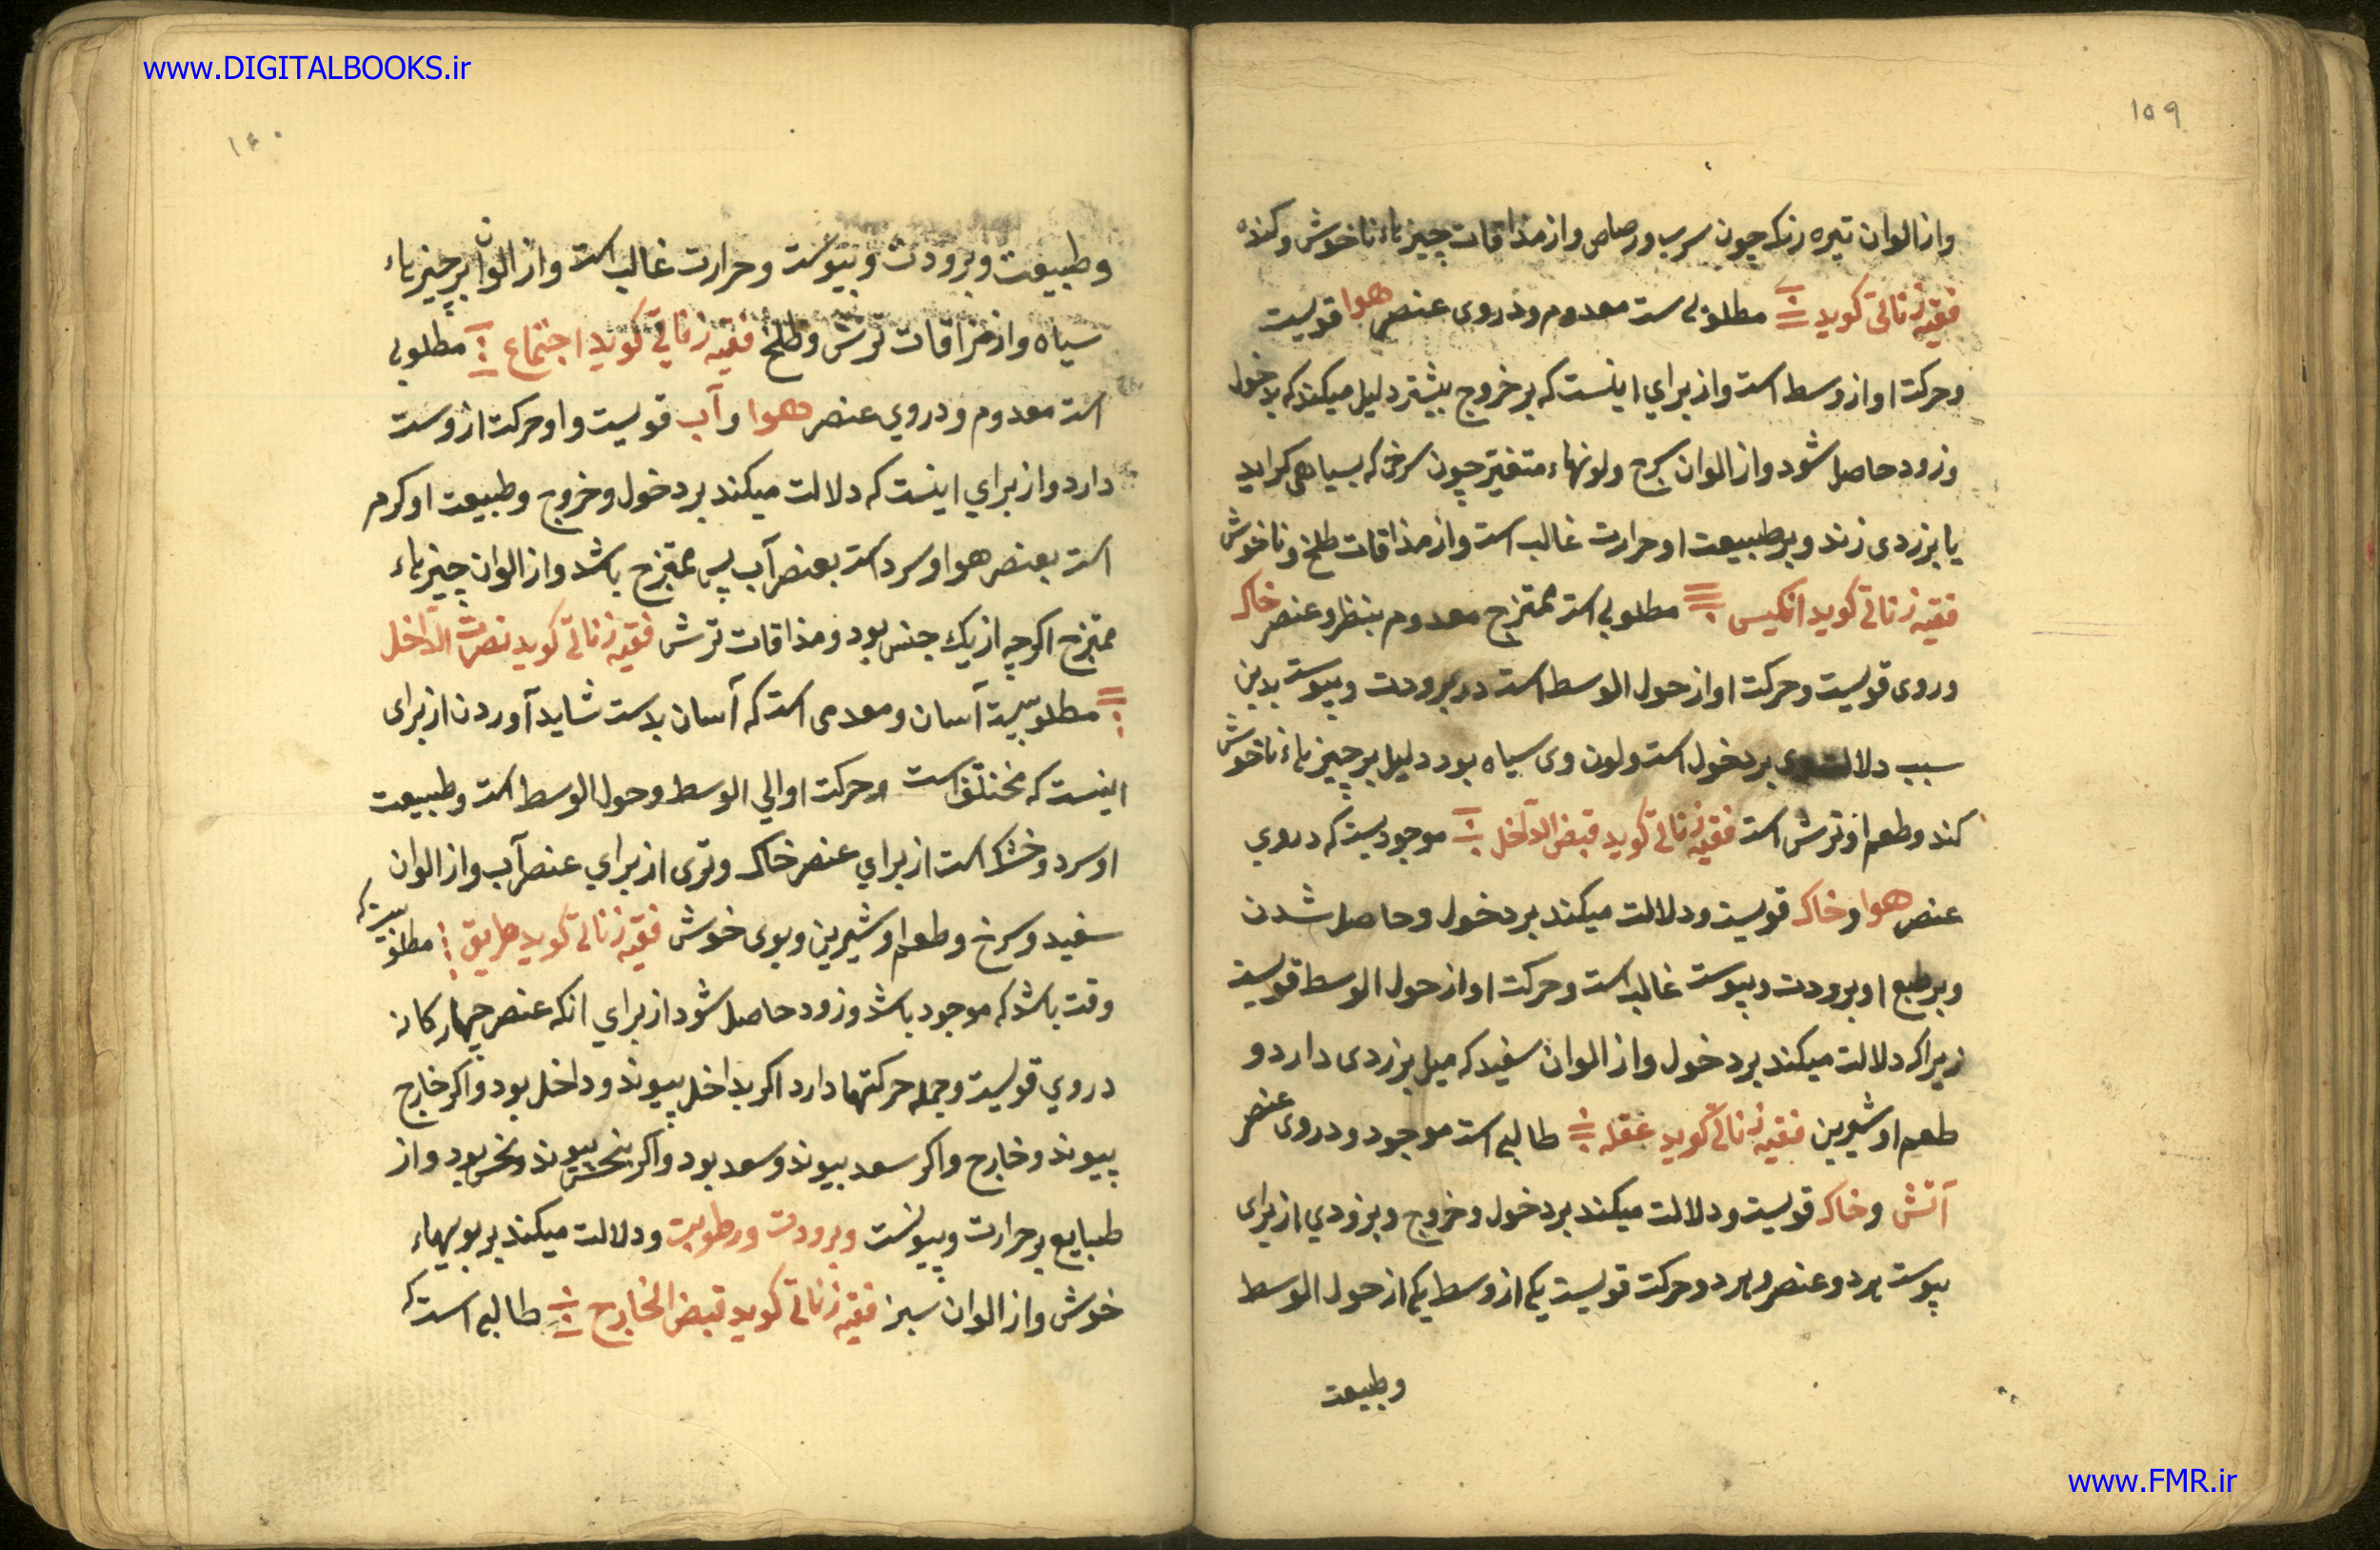 www.DIGITALBOOKS.ir
۱۵۹
واز الوان تیره رنک چون سرب ورصاص واز مذاقات چیزهاء ناخوش وکنده
فقیه زناتی کوید مطلوبی ست معدوم ودروی عنصر هوا قویست
وحرکت او از وسط است واز برای اینست که بر خروج بیشتر دلیل میکند که بدخول
وزود حاصل شود واز الوان سرخ ولونهاء متغیّر چون سرخی که بسیاهی کراید
یا بزردی زند وبر طبیعت او حرارت غالب است واز مذاقات طلخ وناخوش
فقیه زناتی کوید انکیس مطلوبی است ممتزج معدوم بنظر وعنصر خاک
وروی قویست وحرکت او از حول الوسط است در برودت ویبوست بدین
سبب دلالت وی بر دخول است ولون وی سیاه بود دلیل بر چیزهاء ناخوش
کند وطعم او ترش است فقیه زناتی کوید قبض الداخل موجودیست که دروی
عنصر هوا وخاک قویست ودلالت میکند بر دخول وحاصل شدن
وبر طبع او برودت ویبوست غالب است وحرکت او از حول الوسط قویست
زیراکه دلالت میکند بر دخول واز الوان سفید که میل بزردی دارد و
طعم او شیرین فقیه زناتی کوید عقله طالبی است موجود ودروی عنصر
آتش وخاک قویست ودلالت میکند بر دخول وخروج وبزودی از برای
یبوست هر دو عنصر وهر دو حرکت قویست یکی از وسط یکی از حول الوسط
وطبیعت
۱۶۰
وطبیعت وبرودت ویبوست وحرارت غالب است واز الوان بر چیزهاء
سیاه واز مزاقات ترش وطلخ فقیه زناتی کوید اجتماع مطلوبی
است معدوم ودروی عنصر هوا وآب قویست واو حرکت از وست
دارد واز برای اینست که دلالت میکند بر دخول وخروج وطبیعت او کرم
است بعنصر هوا وسرد است بعنصر آب پس ممتزج باشد واز الوان چیزهاء
ممتزج اکرچه از یک جنس بود ومذاقات ترش فقیه زناتی کوید نصرت الداخل
مطلوبیست آسان ومعدمی است که آسان بدست شاید آوردن از برای
اینست که مختلف است وحرکت او الی الوسط وحول الوسط است وطبیعت
او سرد وخشک است از برای عنصر خاک وتری از برای عنصر آب واز الوان
سفید وسرخ وطعم او شیرین وبوی خوش فقیه زناتی کوید طریق مطلوبیست که
وقت باشد که موجود باشد وزود حاصل شود از برای انکه عنصر چهارکانه
دروی قویست وجمله حرکتها دارد اکر بداخل پیوندد وداخل بود واکر خارج
پیوندد وخارج واکر سعد بیوندد وسعد بود واکر بنحس پیوندد ونحس بود واز
طبایع بر حرارت ویبوست وبرودت ورطوبت ودلالت میکند بر بویهاء
خوش واز الوان سبز فقیه زناتی کوید قبض الخارج طالبی است که
www.FMR.ir